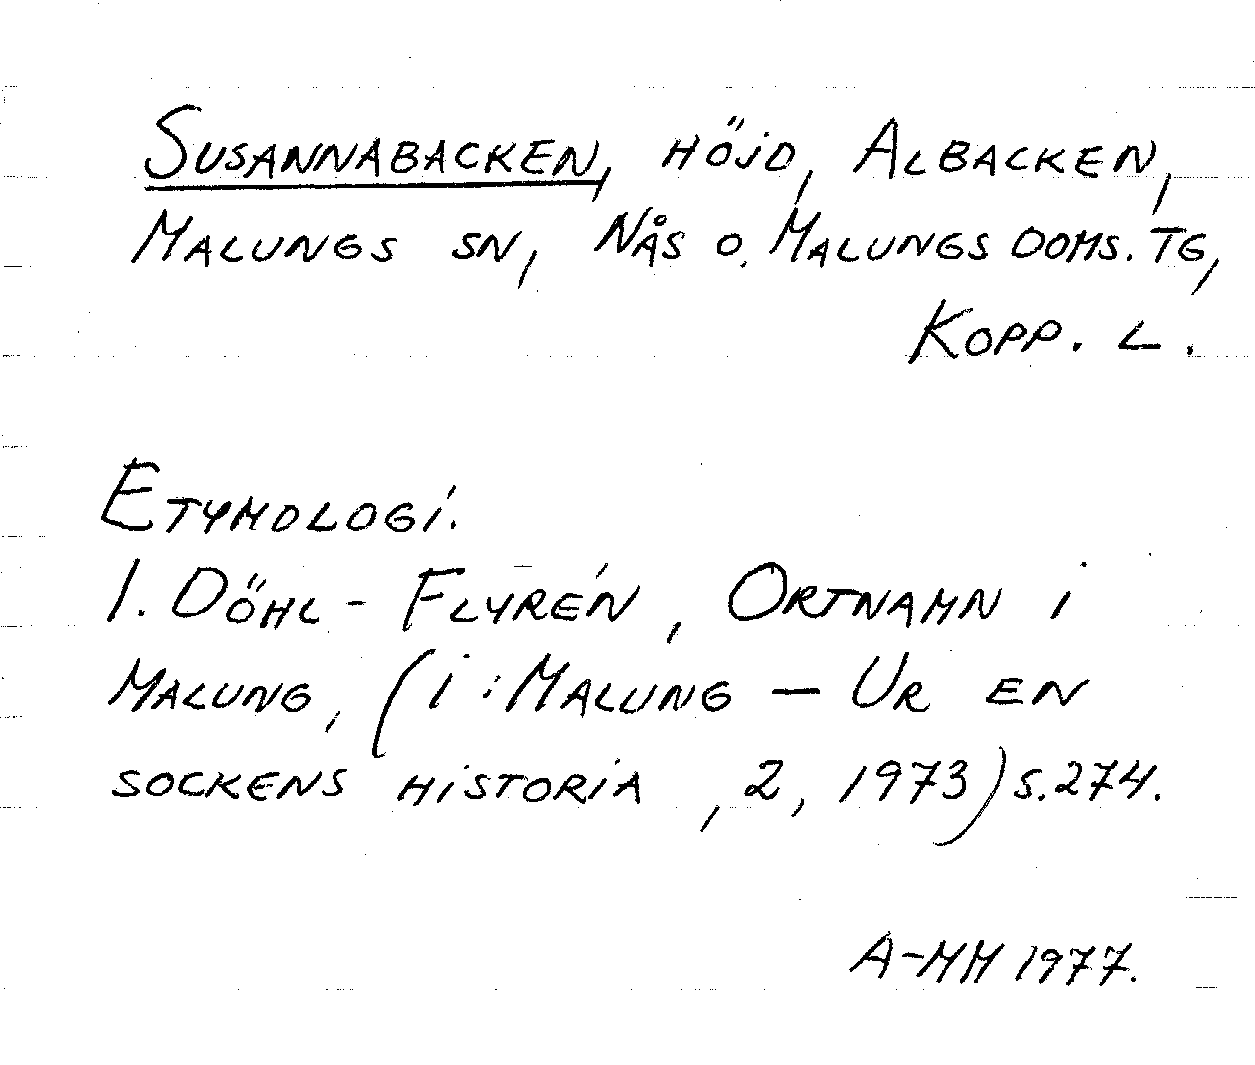 SUSANNABACKEN, HÖJD, ALBACKEN,
MALUNGS SN, NÅS O. MALUNGS DOMS. TG,
KOPP. L.
ETYMOLOGI.
I. DÖHL - FLYRÉN, ORTNAMN I
MALUNG, (I: MALUNG — UR EN
SOCKENS HISTORIA, 2, 1973) S. 274.
A-MM 1977.